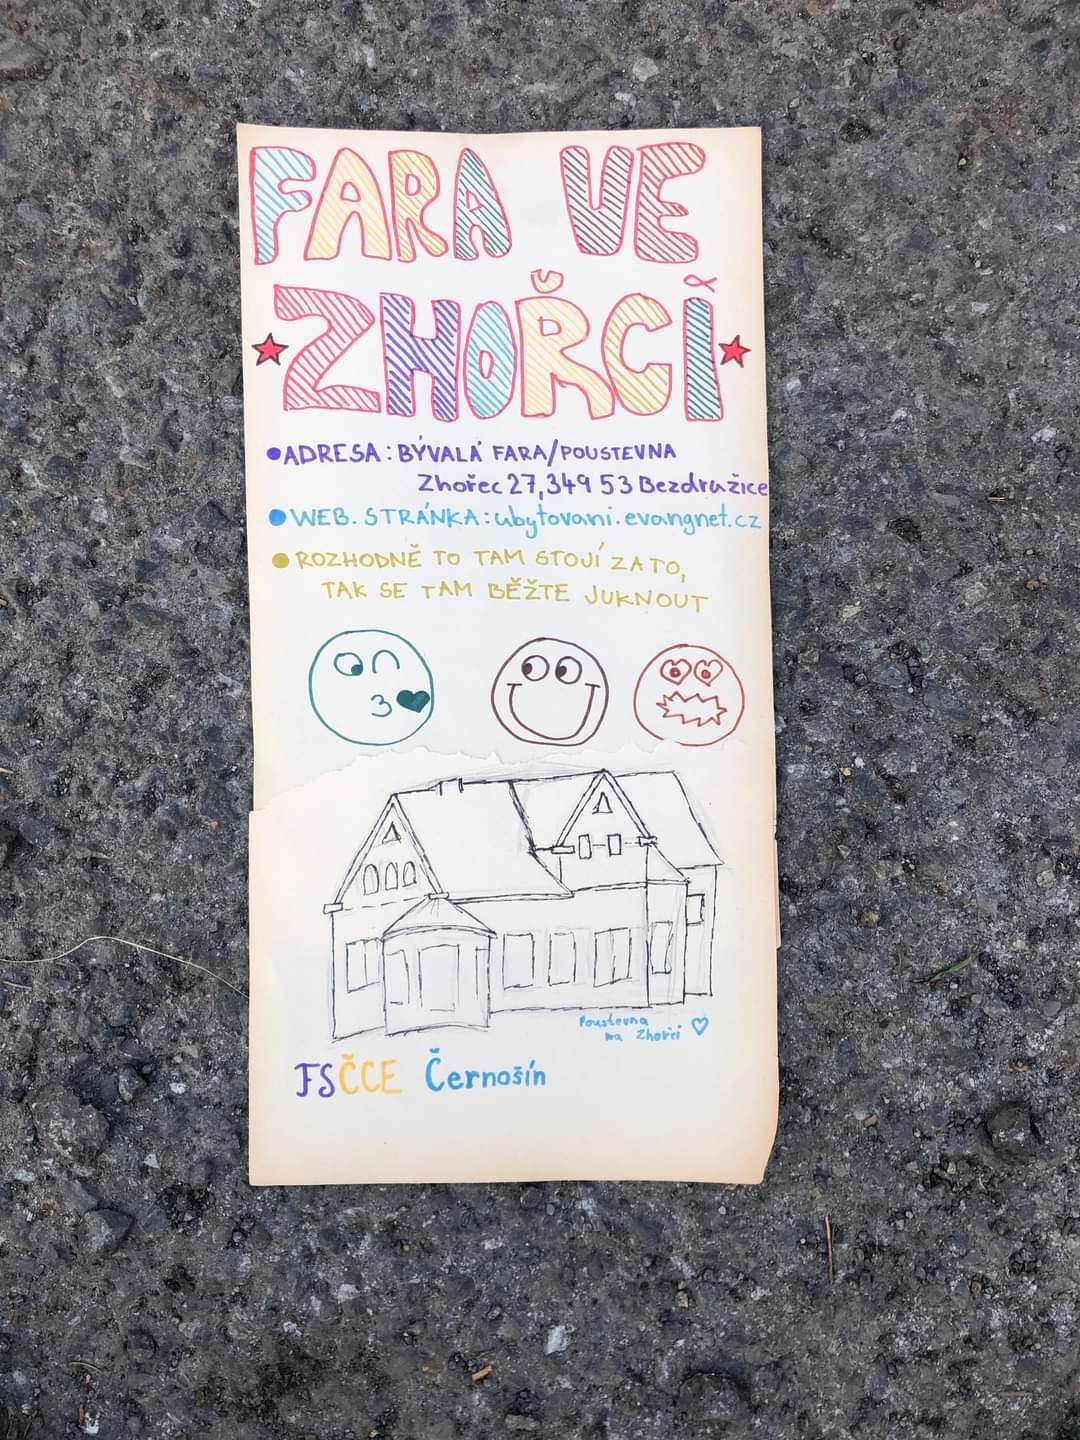 FARA VE
ZHOŘCI
• ADRESA: BÝVALÁ FARA/POUSTEVNA
Zhořec 27, 349 53 Bezdružice
• WEB. STRÁNKA: ubytovani.evangnet.cz
• ROZHODNĚ TO TAM STOJÍ ZA TO,
TAK SE TAM BĚŽTE JUKNOUT
Poustevna
na Zhořci ♡
FSČCE Černošín